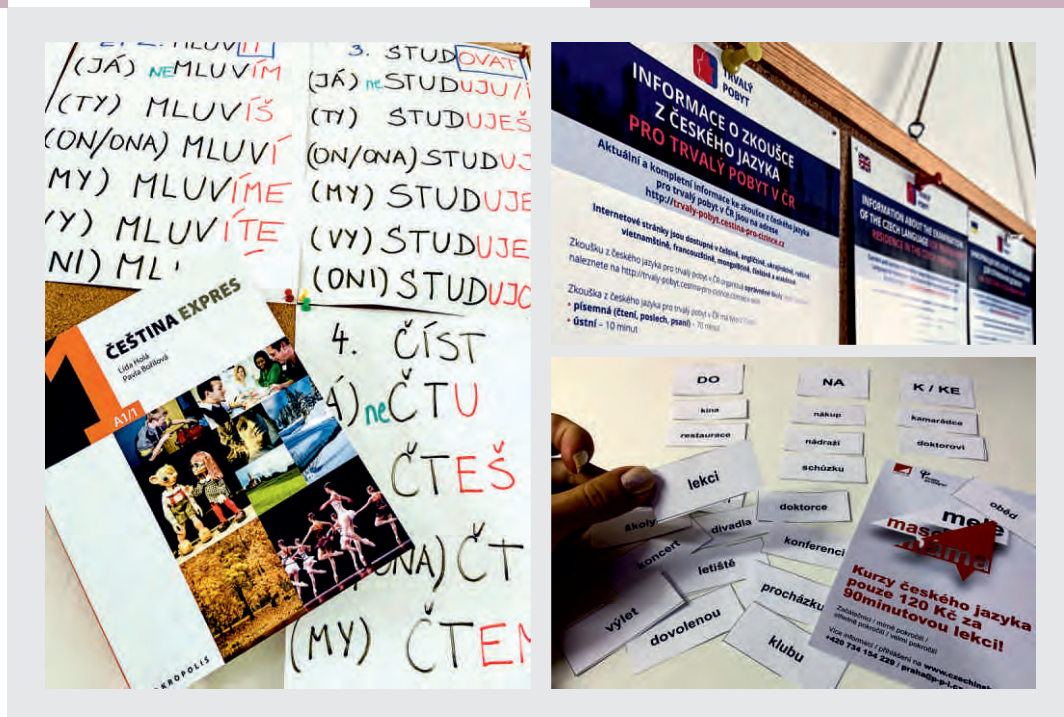 MLUVIT
(JÁ) NEMLUVÍM
(TY) MLUVÍŠ
(ON/ONA) MLUVÍ
(MY) MLUVÍME
VY) MLUVÍTE
NI) ML
3. STUDOVAT
(JÁ) neSTUDUJU/
(TY) STUDUJEŠ
(ON/ONA) STUDUJ
(MY) STUDUJE
(VY) STUDUJE
(ONI) STUDUJ
4. ČÍST
Á) neČTU
ČTEŠ
NA) ČT
(MY) ČTE
1
A1/1
ČEŠTINA EXPRES
Lída Holá
Pavla Bořilová
KROPOLIS
TRVALÝ
POBYT
INFORMACE O ZKOUŠCE
Z ČESKÉHO JAZYKA
PRO TRVALÝ POBYT V ČR
Aktuální a kompletní informace ke zkoušce z českého jazyka
pro trvalý pobyt v ČR jsou na adrese
http://trvaly-pobyt.cestina-pro-cizince.cz
Internetové stránky jsou dostupné v češtině, angličtině, ukrajinštině, ruštině,
vietnamštině, francouzštině, mongolštině, čínštině a arabštině
Zkoušku z českého jazyka pro trvalý pobyt v ČR organizují oprávněné školy
naleznete na http://trvaly-pobyt.cestina-pro-cizince.cz
Zkouška z českého jazyka pro trvalý pobyt v ČR má
• písemná (čtení, poslech, psaní) – 70 minut
• ústní – 10 minut
TRVALÝ
POBYT
INFORMATION ABOUT THE EXAMINATION
OF THE CZECH LANGUAGE FOR PERMANENT
RESIDENCE IN THE CZECH REPUBLIC
DO
kina
restaurace
NA
nákup
nádraží
schůzku
K / KE
kamarádce
doktorovi
lekci
školy
koncert
výlet
divadla
letiště
dovolenou
doktorce
konferenci
procházku
klubu
oběd
mele
maso
máma
Kurzy českého jazyka
pouze 120 Kč za
90minutovou lekci!
Začátečníci / mírně pokročilí /
středně pokročilí / velmi pokročilí
Více informací / přihlášení na www.czechinsh
+420 734 154 229 / praha@p-p-i.cz